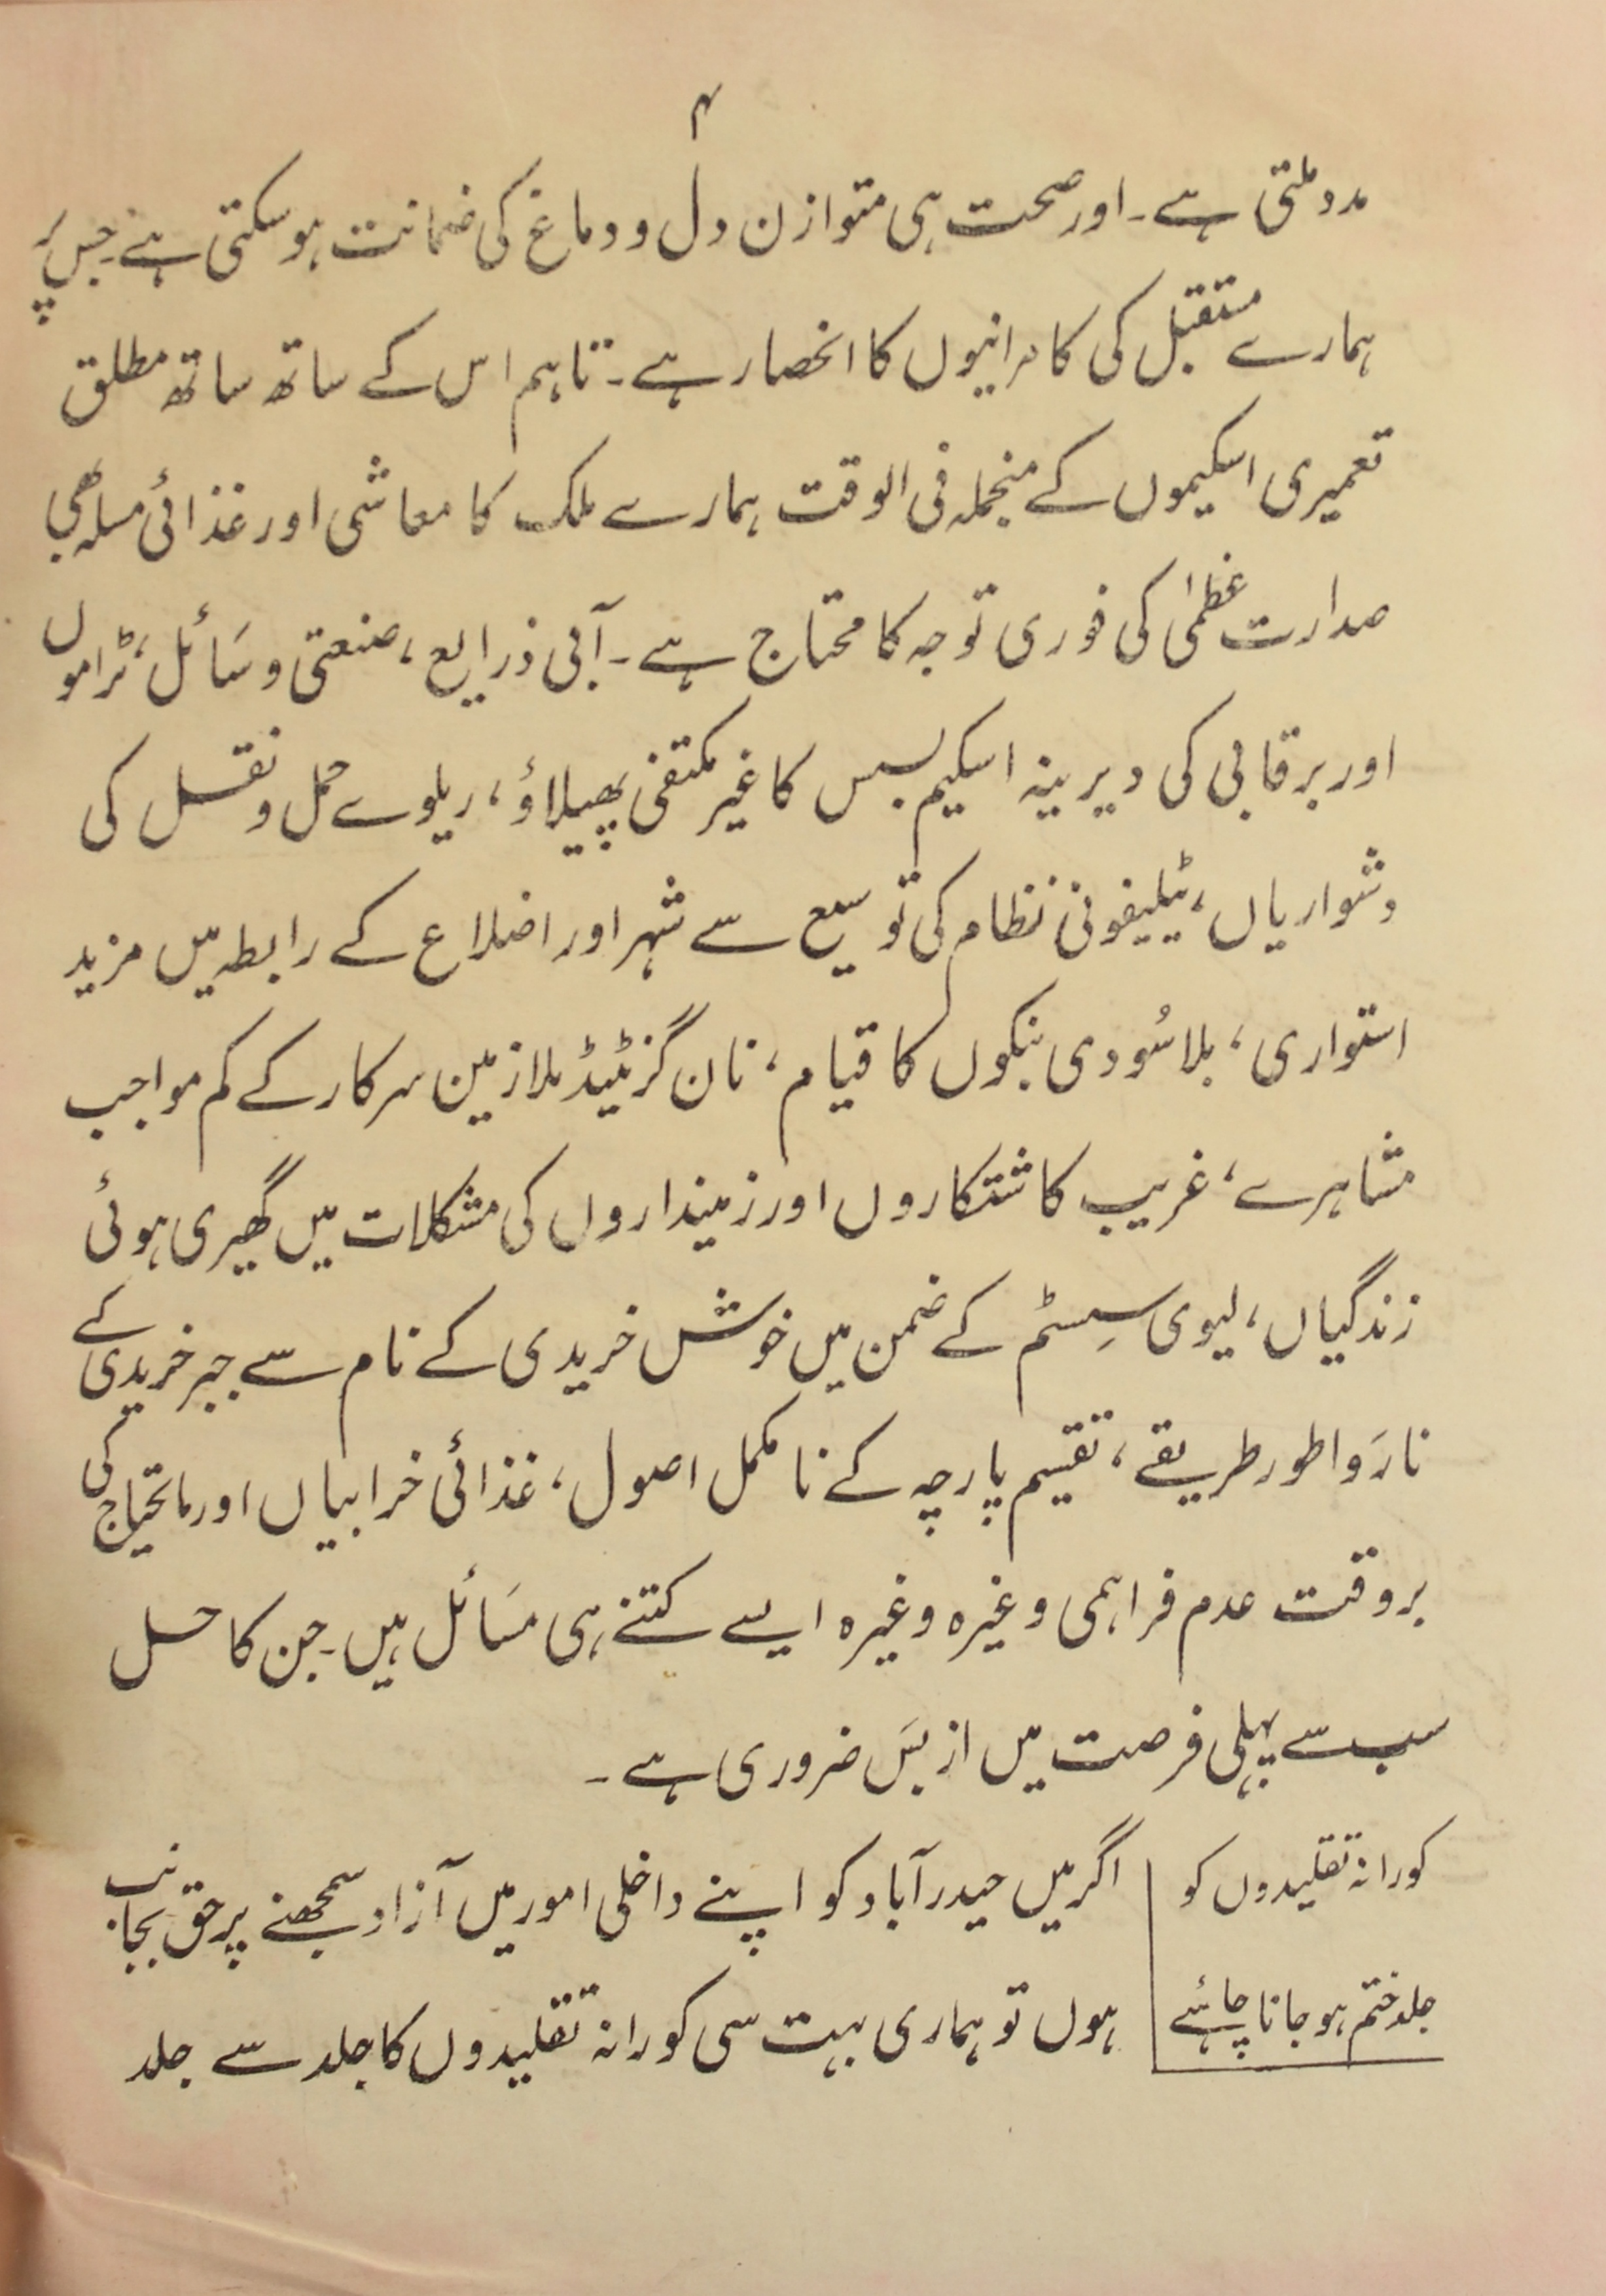 ۴
مدد ملتی ہے۔ اور صحت ہی متوازن دل و دماغ کی ضمانت ہو سکتی ہے۔ جس پر
ہمارے مستقبل کی کامرانیوں کا انحصار ہے۔ تاہم اس کے ساتھ ساتھ مطلق
تعمیری اسکیموں کے منجملہ فی الوقت ہمارے ملک کا معاشی اور غذائی مسلہ بھی
صدارت عظمیٰ کی فوری توجہ کا محتاج ہے۔ آبی ذرایع، صنعتی وسَائل، ٹراموں
اور برقابی کی دیرینہ اسکیم بسس کا غیر مکتفی پھیلاؤ، ریلوے حمل و نقل کی
دشواریاں، ٹیلیفونی نظام کی توسیع سے شہر اور اضلاع کے رابطہ میں مزید
استواری، بلا سُودی بنکوں کا قیام، نان گزیٹیڈ ملازمین سرکار کے کم مواجب
مشاہرے، غریب کاشتکاروں اور زمینداروں کی مشکلات میں گھیری ہوئی
زندگیاں، لیوی سِسٹم کے ضمن میں خوش خریدی کے نام سے جبر خریدی کے
نارَوا طور طریقے، تقسیم پارچہ کے نامکمل اصول، غذائی خرابیاں اور مایحتاج کی
بروقت عدم فراہمی وغیرہ وغیرہ ایسے کتنے ہی مسَائل ہیں۔ جن کا حل
سب سے پہلی فرصت میں از بسَ ضروری ہے۔
کورانہ تقلیدوں کو
جلد ختم ہو جانا چاہئے
اگر میں حیدرآباد کو اپنے داخلی امور میں آزاد سمجھنے پر حق بجانب
ہوں تو ہماری بہت سی کورانہ تقلیدوں کا جلد سے جلد